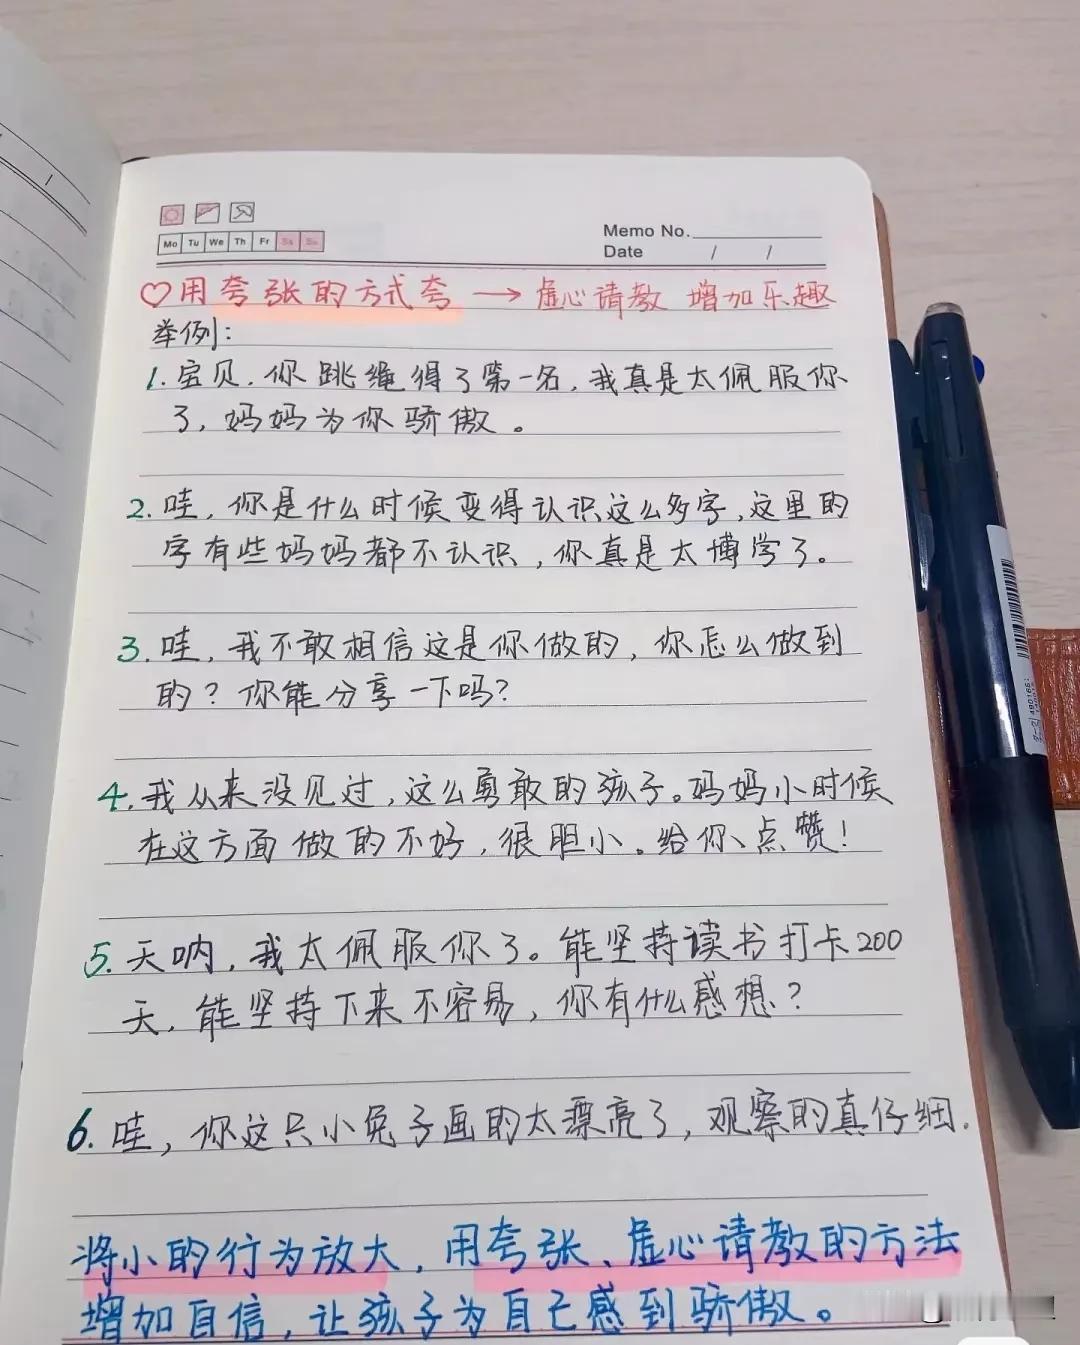 Mo Tu We Th Fr Sa Su
Memo No.
Date / /
♡用夸张的方式夸 → 虚心请教 增加乐趣
举例:
1. 宝贝, 你跳绳得了第一名, 我真是太佩服你
了, 妈妈为你骄傲。
2. 哇, 你是什么时候变得认识这么多字, 这里的
字有些妈妈都不认识, 你真是太博学了。
3. 哇, 我不敢相信这是你做的, 你怎么做到
的? 你能分享一下吗?
4. 我从来没见过, 这么勇敢的孩子。妈妈小时候
在这方面做的不好, 很胆小。给你点赞!
5. 天呐, 我太佩服你了。能坚持读书打卡200
天, 能坚持下来不容易, 你有什么感想?
6. 哇, 你这只小兔子画的太漂亮了, 观察的真仔细.
将小的行为放大, 用夸张、虚心请教的方法
增加自信, 让孩子为自己感到骄傲。